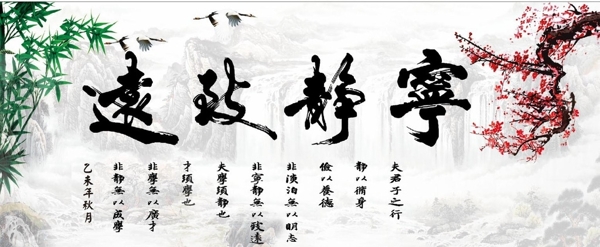 寧靜致遠
夫君子之行
靜以脩身
儉以養德
非淡泊無以明志
非寧靜無以致遠
夫學須靜也
才須學也
非學無以廣才
非靜無以成學
乙未年秋月